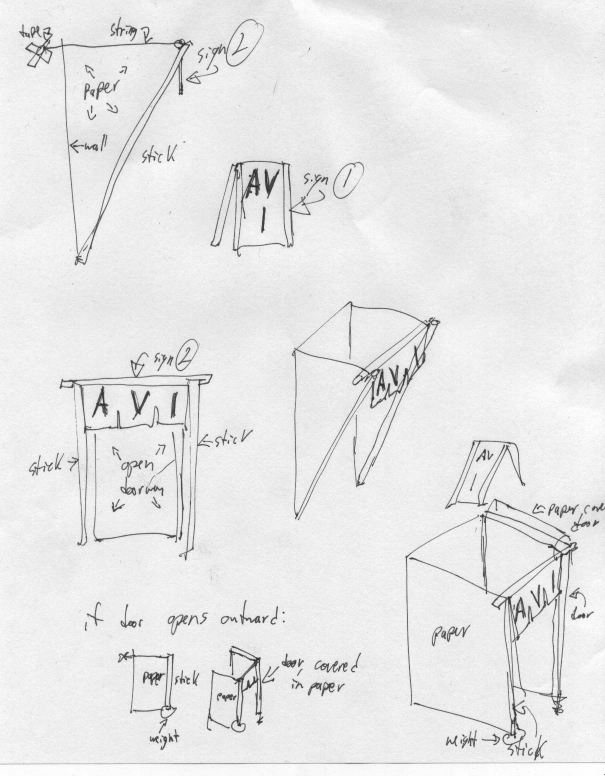 tape
string
sign 2
paper
wall
stick
AV
I
sign 1
sign 2
A V I
stick
stick
open
doorway
A V I
AV
I
paper cove
door
A V I
paper
door
weight
stick
if door opens outward:
paper
stick
weight
paper
door covered
in paper